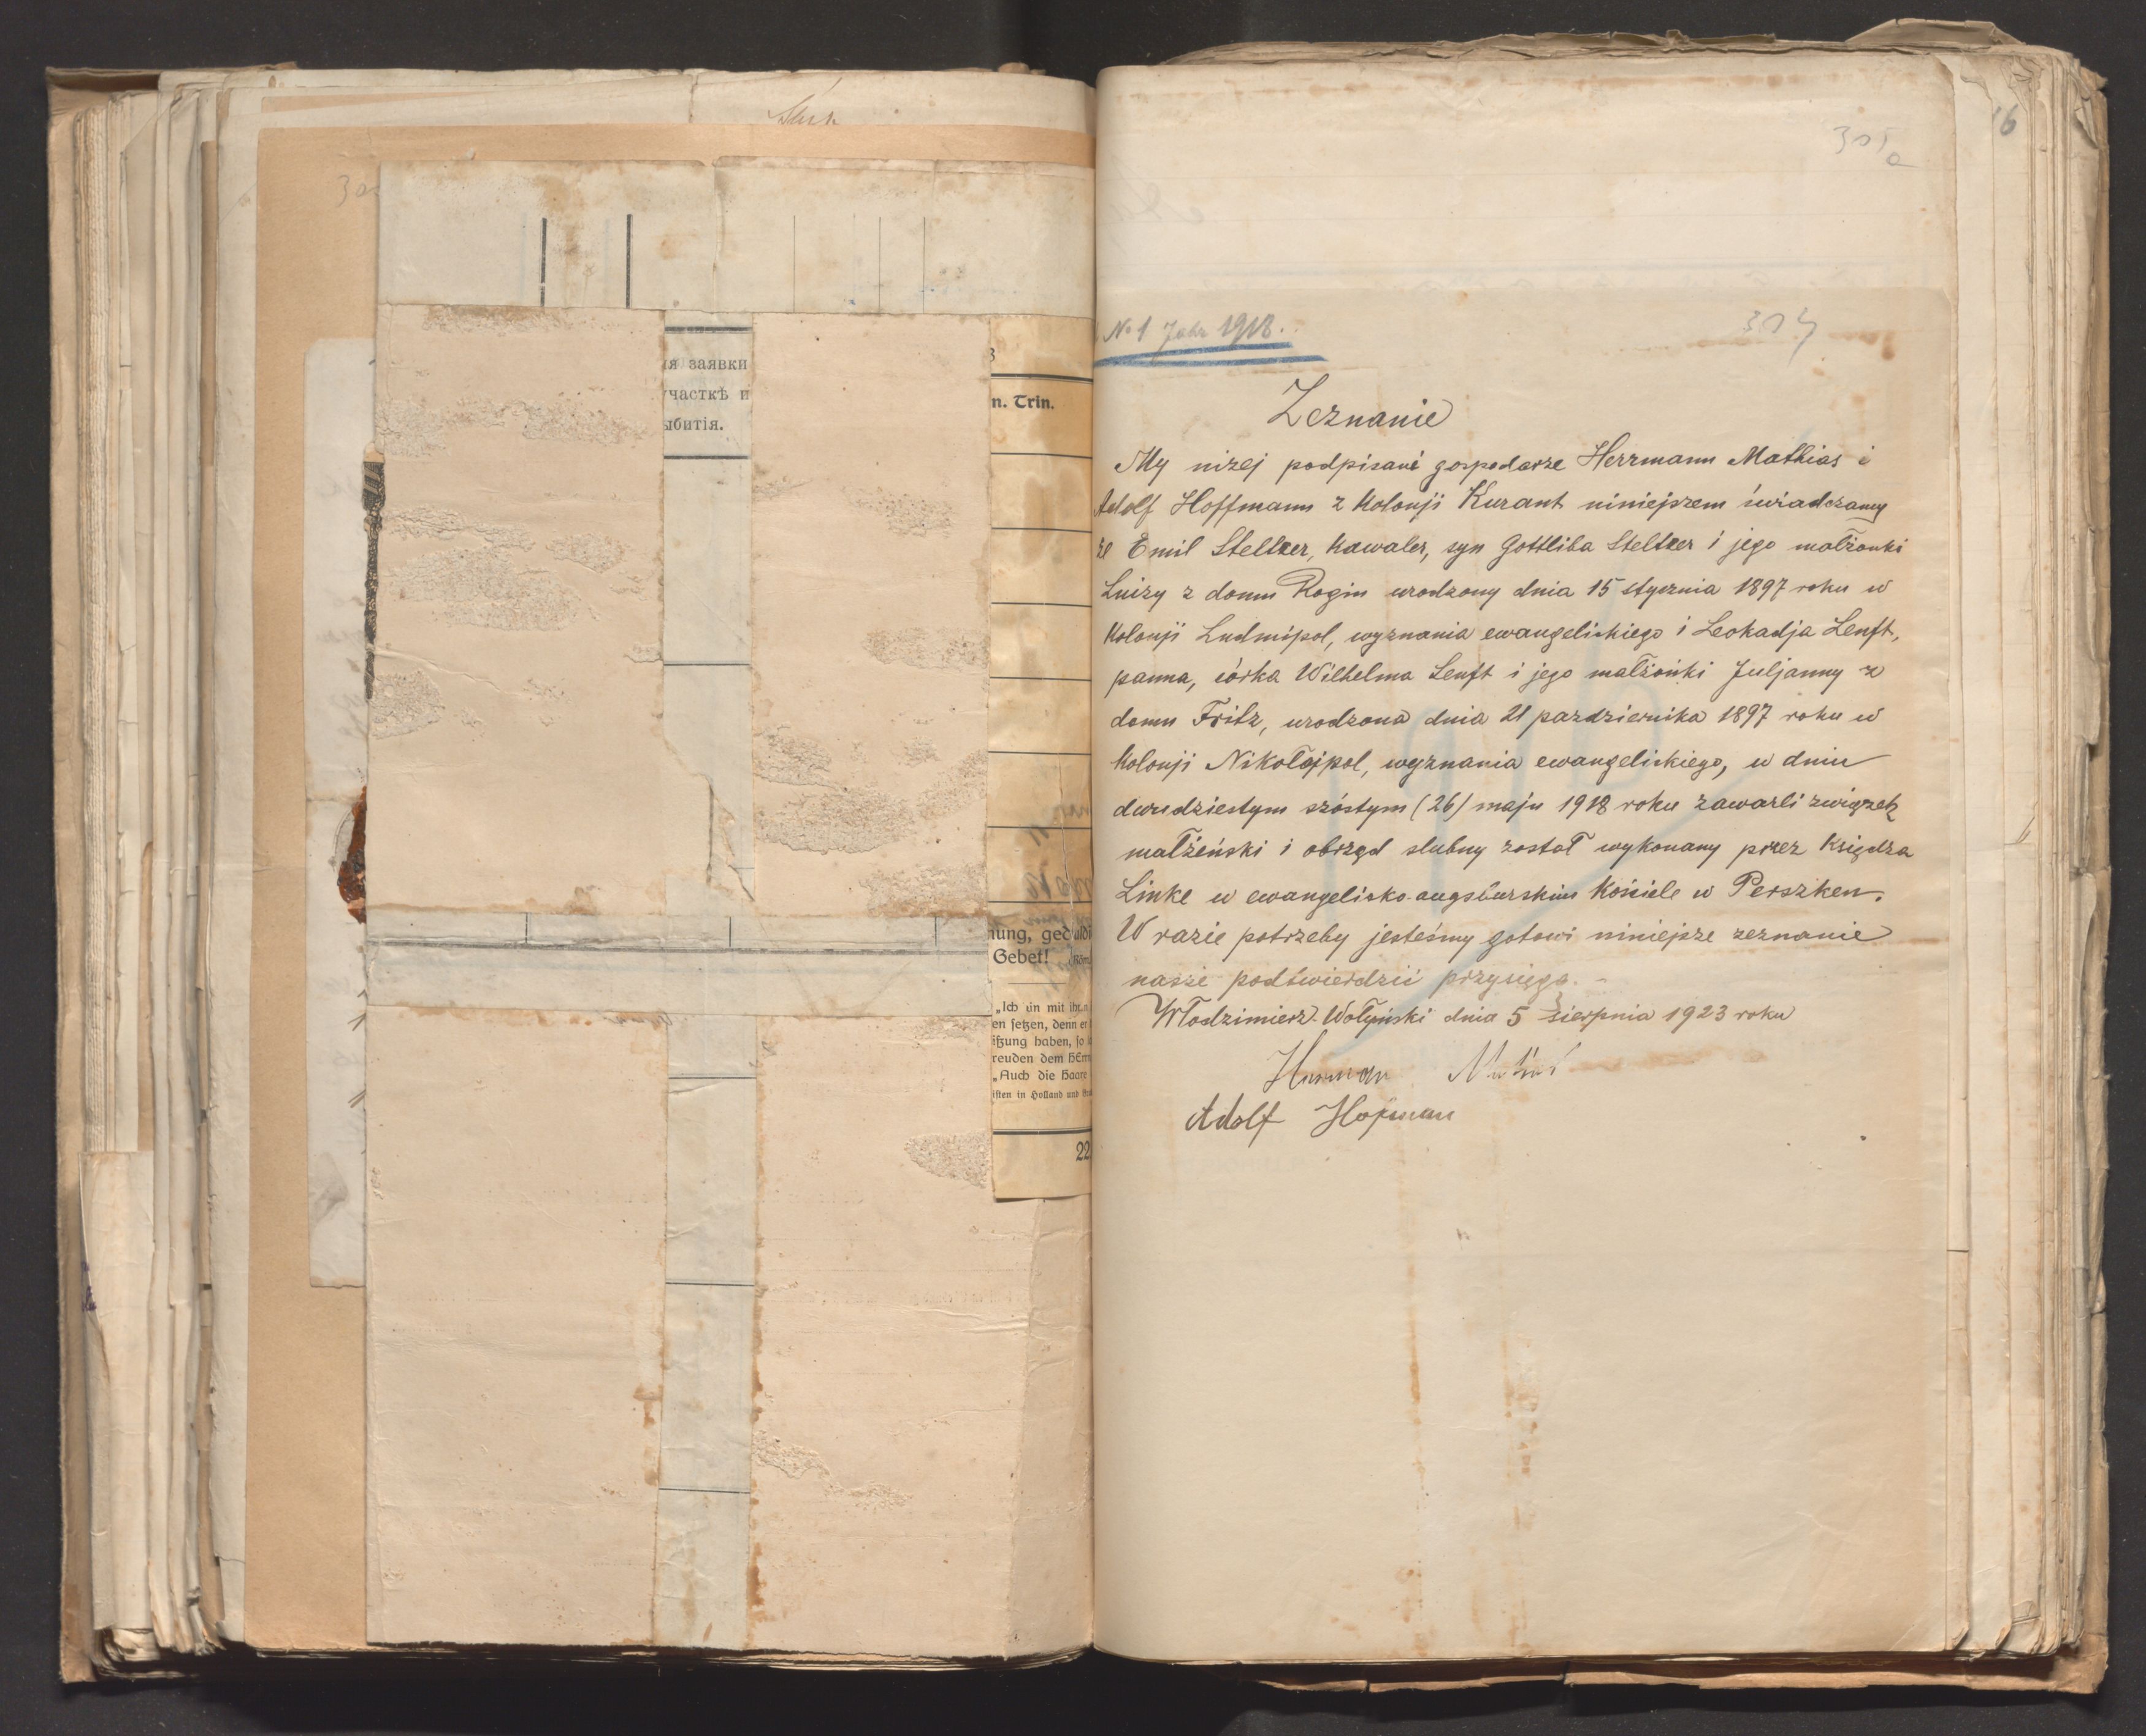 ія заявки
участкѣ и
ыбитія.
n. Trin.
nung, geduldi
Gebet!
„Ich bin mit ihm
en setzen, denn er
reuden dem HErrn
„Auch die Haare
isten in Holland und
22
305a
16
No 1 Jahr 1918.
304
Zeznanie
My niżej podpisani gospodarze Herrmann Mathias i
Adolf Hoffmann z Kolonji Kurant niniejszem świadczamy
że Emil Steltzer, kawaler, syn Gottliba Steltzer i jego małżonki
Luizy z domu Rogin urodzony dnia 15 stycznia 1897 roku w
Kolonji Ludmipol, wyznania ewangelickiego i Leokadja Senft,
panna, córka Wilhelma Senft i jego małżonki Juljanny z
domu Fritz, urodzona dnia 21 pazdziernika 1897 roku w
Kolonji Nikołajpol, wyznania ewangelickiego, w dniu
dwudziestym szóstym (26) maju 1918 roku zawarli związek
małżeński i obrzęd slubny został wykonany przez Księdza
Linke w ewangelisko-augsburskim Kościele w Perszken.
W razie potrzeby jesteśmy gotowi niniejsze zeznanie
nasze podtwierdzić przysięgą.-
Włodzimierz-Wołyński dnia 5 sierpnia 1923 roku
Herman
Adolf Hofman